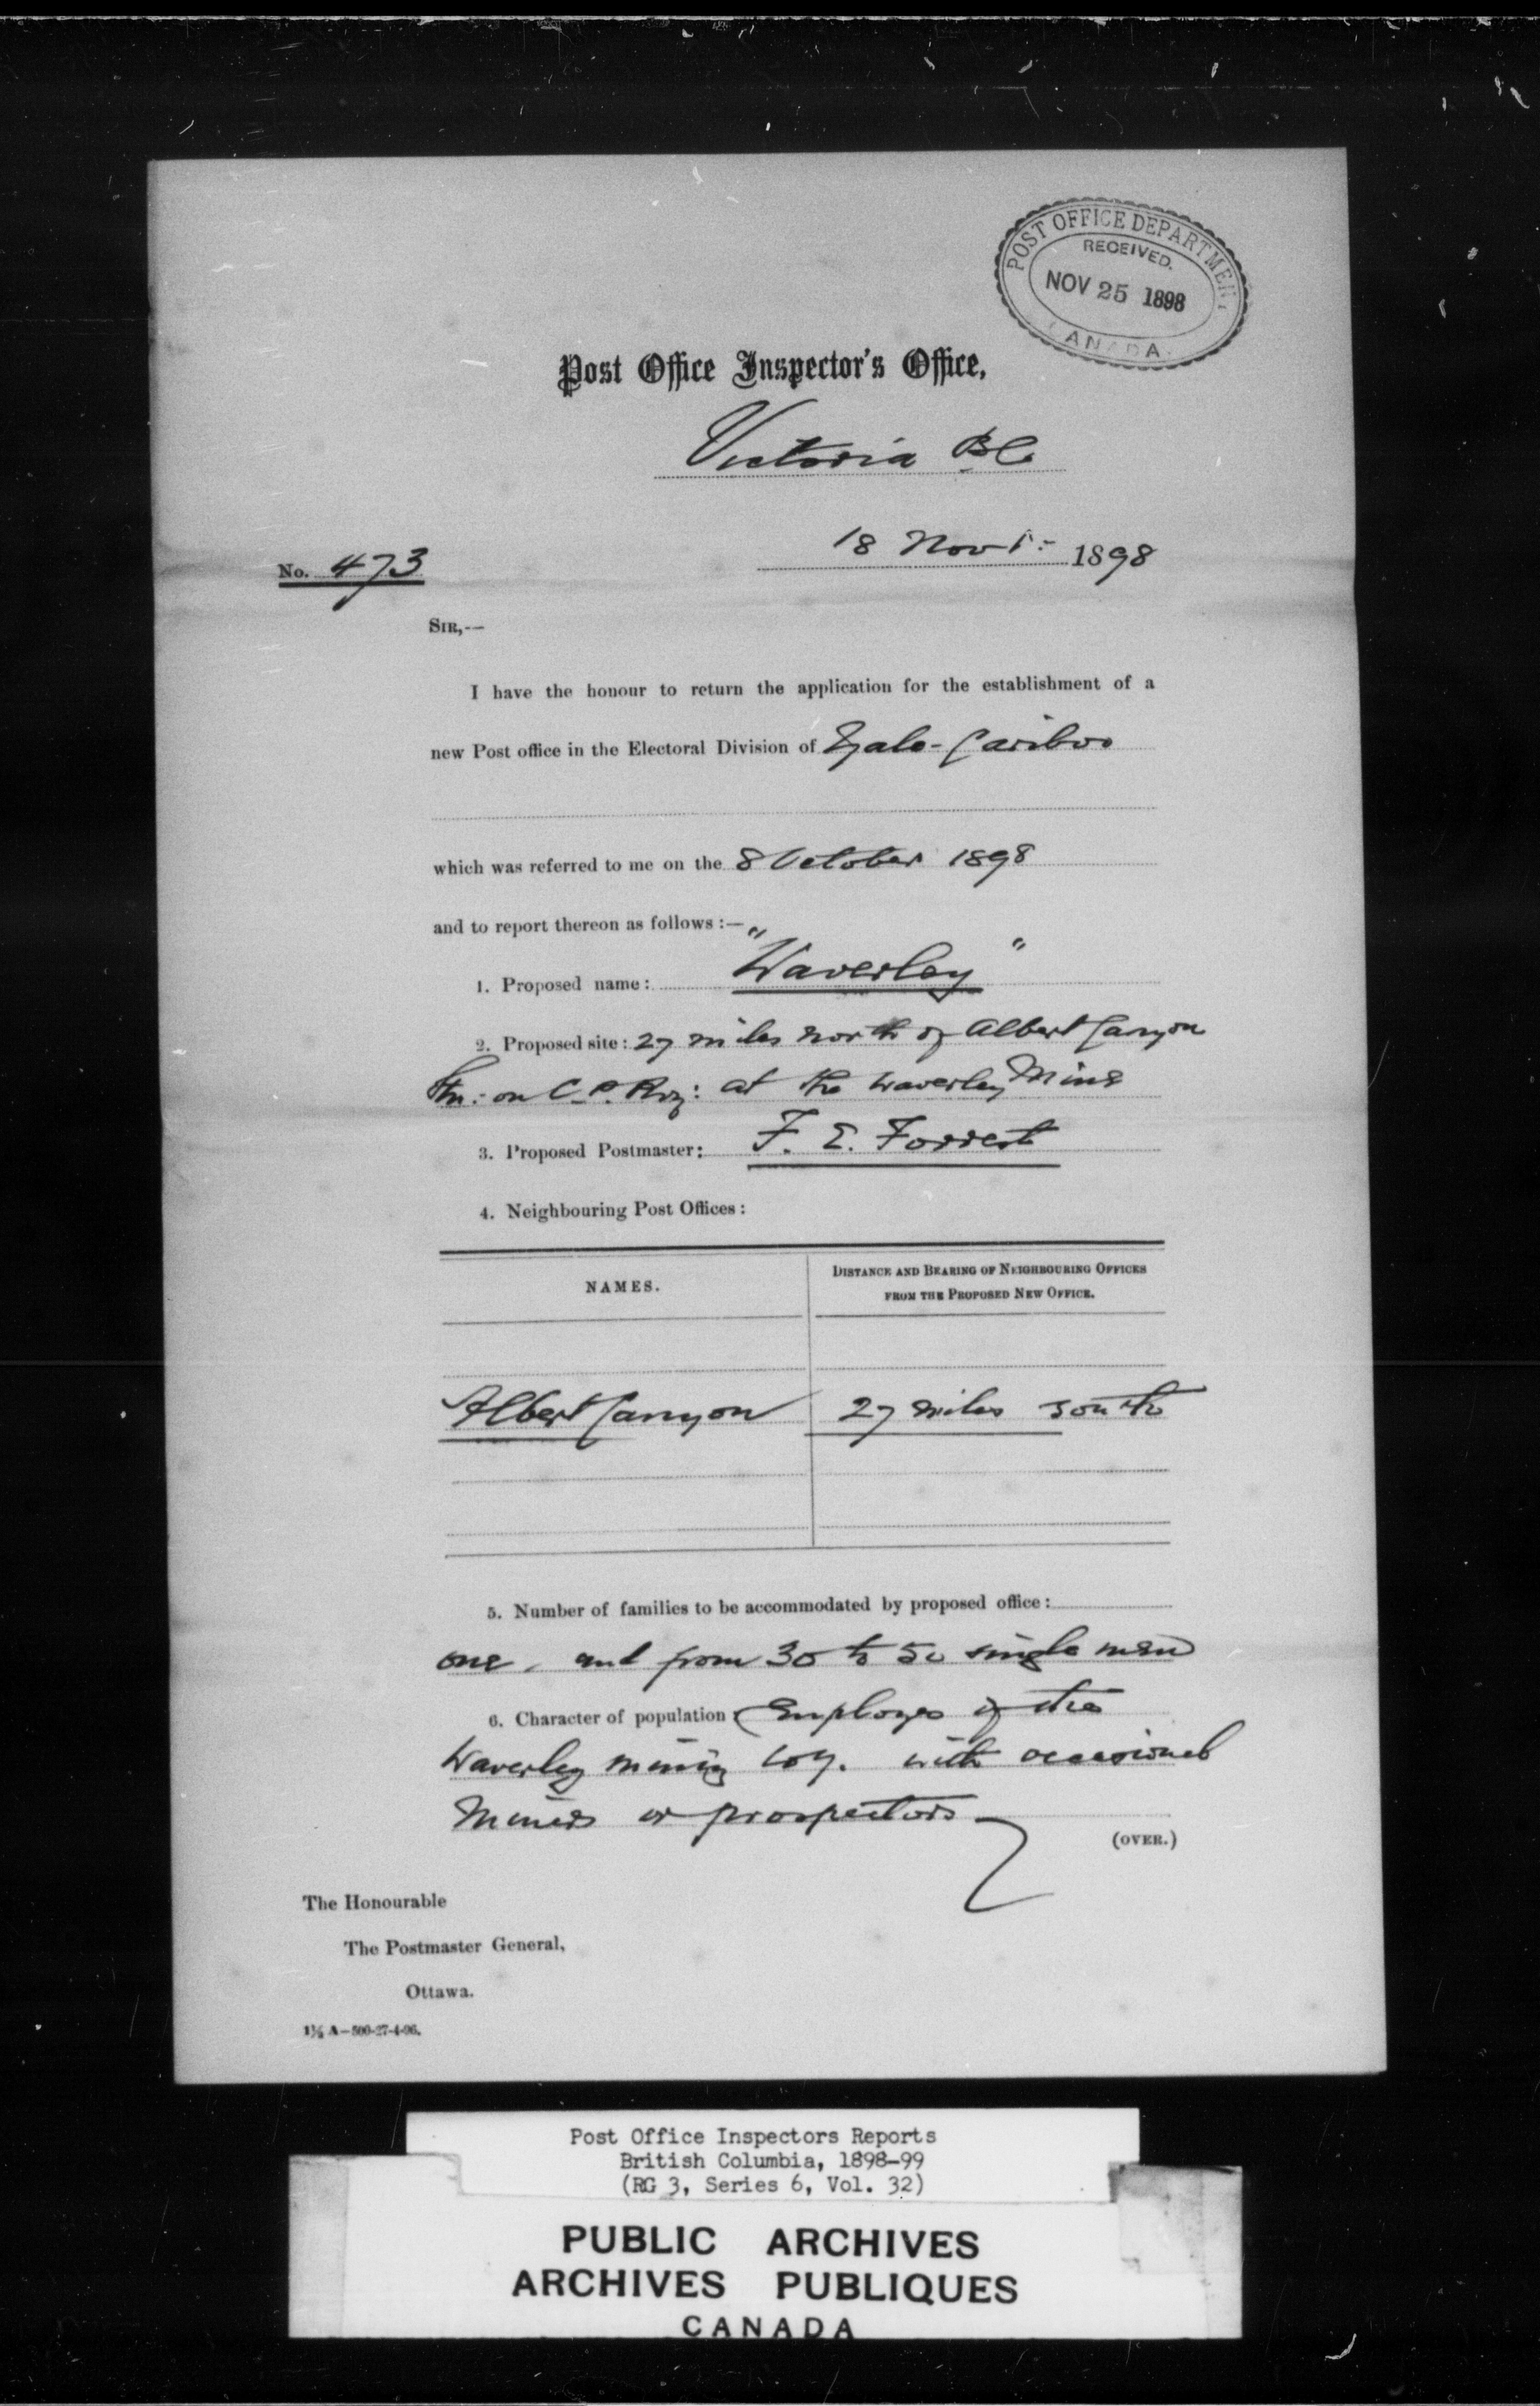 POST OFFICE DEPARTMENT
RECEIVED.
NOV 25 1898
CANADA.
Post Office Inspector's Office,
Victoria B.C.
18 Novr:- 1898
No. 473
SIR,--
I have the honour to return the application for the establishment of a
new Post office in the Electoral Division of Yale-Cariboo
which was referred to me on the 8 October 1898
and to report thereon as follows :—
1. Proposed name: "Waverley"
2. Proposed site: 27 miles north of Albert Canyon
Stn:- on C.P. Rwy: at the Waverley Mine
3. Proposed Postmaster: F. E. Forrest
4. Neighbouring Post Offices:
NAMES.
DISTANCE AND BEARING OF NEIGHBOURING OFFICES
FROM THE PROPOSED NEW OFFICE.
Albert Canyon 27 miles south
5. Number of families to be accommodated by proposed office:
one, and from 30 to 50 single men
6. Character of population: Employes of the
Waverley mining Coy. with occasional
Miners or prospectors
(OVER.)
The Honourable
The Postmaster General,
Ottawa.
1½ A—500-27-4-96.
Post Office Inspectors Reports
British Columbia, 1898-99
(RG 3, Series 6, Vol. 32)
PUBLIC ARCHIVES
ARCHIVES PUBLIQUES
CANADA